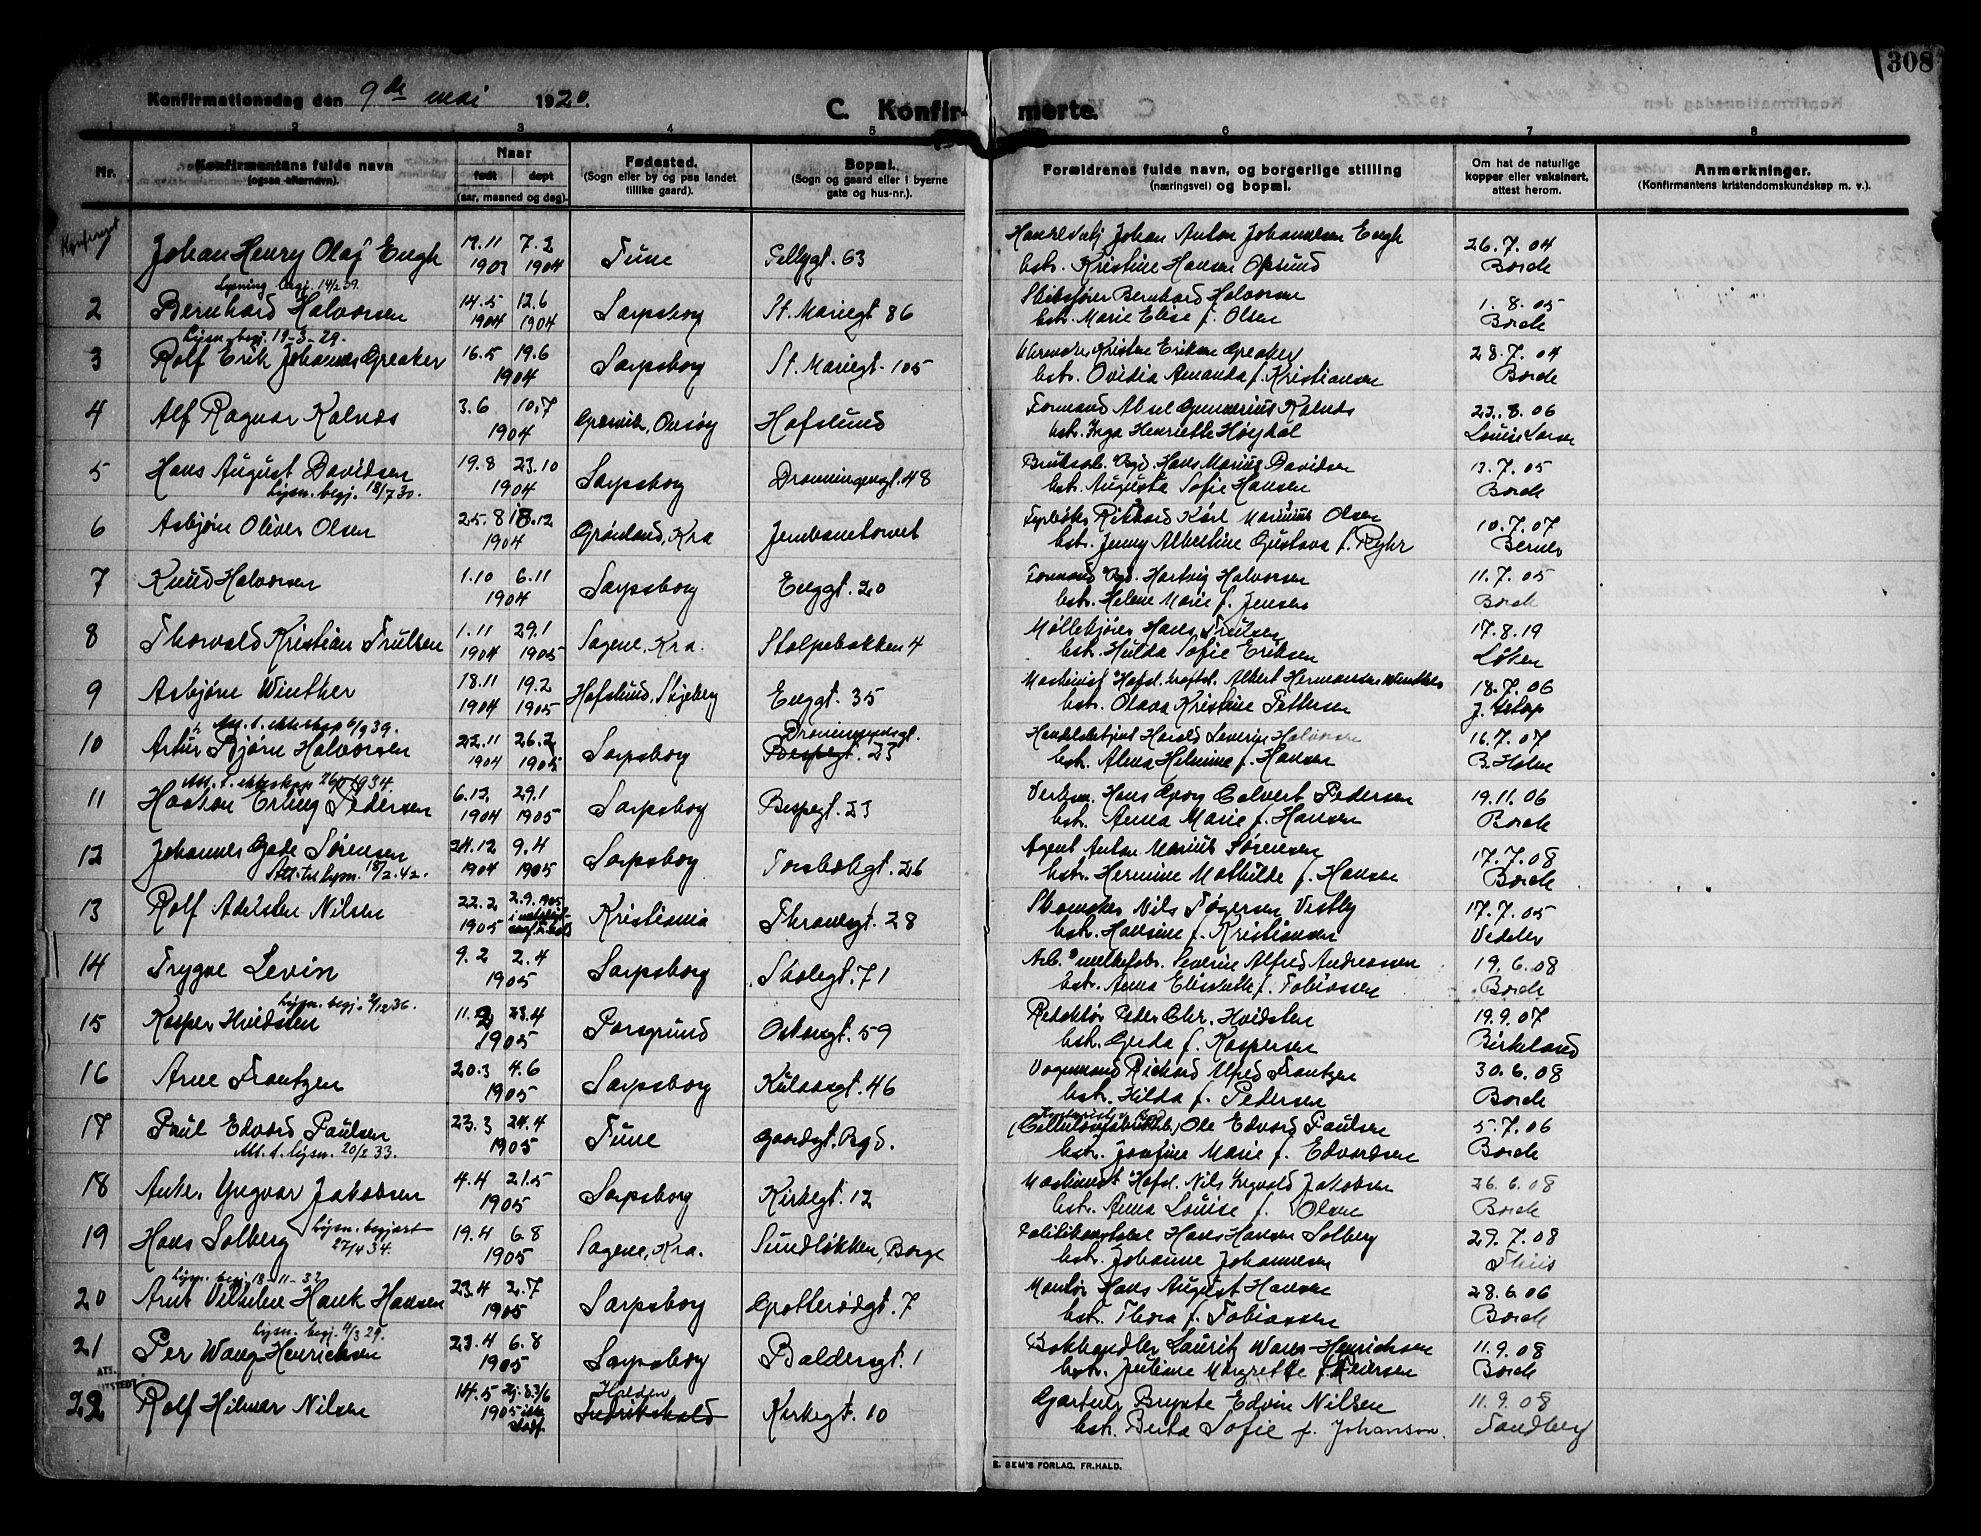 308
Konfirmationsdag den 9de mai 1920.
C. Konfir- merte.
1 2 3 4 5 6 7 8
Nr.
Konfirmantens fulde navn
(ogsaa efternavn).
Naar
født døpt
(aar, maaned og dag).
Fødested.
(Sogn eller by og paa landet
tillike gaard).
Bopæl.
(Sogn og gaard eller i byerne
gate og hus-nr.).
Forældrenes fulde navn, og borgerlige stilling
(næringsvei) og bopæl.
Om hat de naturlige
kopper eller vaksinert,
attest herom.
Anmerkninger.
(Konfirmantens kristendomskundskap m. v.).
1 Johan Henry Olaf Engh 7.2 1904 Tune 63 Johan Anton Johannesen Engh 26.7.04
hstr. Kristine Hansen Opsund Borch
Lysning begj. 14/2 39.
2 Bernhard Halvorsen 14.5 1904 12.6 1904 Sarpsborg St. Mariegt 86 Bernhard Halvorsen 1.8.05
hstr. Marie Elise f. Olsen Borch
Lysn. begj. 19-3-29.
3 Rolf Erik Johannes Greaker 16.5 19.6 1904 Sarpsborg St. Mariegt. 105 Kristen Eriksen Greaker 28.7.04
hstr. Ovidia Amanda f. Kristiansen Borch
4 Alf Ragnar Kalnes 3.6 10.7 1904 Hafslund Formand Gunnerius Kalnes 23.8.06
hstr. Inga Henriette Høydal Louise Larsen
5 Hans August Davidsen 19.8 23.10 1904 Sarpsborg Dronningensgt. 48 Hans Marius Davidsen 13.7.05
Lysn. begj. 18/7 30. hstr. Augusta Sofie Hansen Borch
6 Asbjørn Oliver Olsen 25.8 18.12 1904 Grønland, Kra Jernbanetorvet Fyrbøter Rikhard Karl Marinius Olsen 10.7.07
hstr. Jenny Albertine Gustava f. Ryhr Berner
7 Knud Halvorsen 1.10 6.11 1904 Sarpsborg Enggt. 20 Formand Hartvig Halvorsen 11.7.05
hstr. Helene Marie f. Jensen Borch
8 Thorvald Kristian Trulsen 1.11 1904 29.1 1905 Sagene, Kra. Stolpebakken 4 Hans Trulsen 17.8.19
hstr. Hulda Sofie Eriksen Løken
9 Asbjørn Winther 18.11 1904 19.2 1905 Hafslund, Skjeberg Enggt. 35 Maskinist Albert Hermansen Winther 18.7.06
hstr. Olava Kristine Pettersen
Att. t. ekteskap 6/9 39.
10 Artur Bjørn Halvorsen 22.11 1904 26.2 1905 Sarpsborg Dronningensgt. 23 Harald Severin Halvorsen 16.7.07
hstr. Alma Helmine f. Hansen B. Holm
Att. t. ekteskap 1934.
11 Haakon Erling Pedersen 6.12 1904 29.1 1905 Sarpsborg 23 Hans Georg Calvert Pedersen 19.11.06
hstr. Anna Marie f. Hansen Borch
12 Johannes Gade Sørensen 24.12 1904 9.4 1905 Sarpsborg Torsbækgt. 26 Agent Anton Marius Sørensen 17.7.08
Att. til lysn. 18/2.42. hstr. Hermine Mathilde f. Hansen Borch
13 Rolf Adelsten Nilsen 22.2 1905 2.9.1905 Kristiania Thronesgt. 28 Skomaker Nils Tøgersen Vestby 17.7.05
hstr. Hansine f. Kristiansen Vedeler
14 Trygve Levin 9.2 2.4 1905 Sarpsborg Skolegt. 71 Arb. Severin Alfred Andreassen 19.6.08
hstr. Anna Elisabeth f. Tobiassen Borch
Lysn. begj. 9/12 36.
15 Kasper Hvidsten 11.2 23.4 1905 Porsgrund Oskarsgt. 59 Redaktør Peder Chr. Hvidsten 19.9.07
hstr. Gerda f. Kaspersen Birkeland
16 Arne Frantzen 20.3 4.6 1905 Sarpsborg Kulaasgt. 46 Vognmand Richard Alfred Frantzen 30.6.08
hstr. Hilda f. Pedersen Borch
17 Paul Edvard Paulsen 23.3 24.4 1905 Tune Gaardgt. Bgd. (Cellulosefabrikarb.) Ole Edvard Paulsen 5.7.06
Att. t. lysn. 20/2 33. hstr. Josefine Marie f. Edvardsen Borch
18 Anker Yngvar Jakobsen 4.4 21.5 1905 Sarpsborg Kirkegt. 12 Maskinist Hafsl. Nils Ingvald Jakobsen 26.6.08
hstr. Anna Louise f. Olsen Borch
19 Hans Solberg Lysn. begjært 27/4 34. 19.4 6.8 1905 Sagene, Kra. Sundløkken, Borge Politikonstabel Hans Hansen Solberg 29.7.08
hstr. Johanne Johannesen Thiis
Lysn. begj. 18-11-32
20 Arne Vilhelm Hauk Hansen 23.4 2.7 1905 Sarpsborg Grotterødgt. 7 Montør Hans August Hansen 28.6.06
hstr. Thora f. Tobiassen Borch
Lysn. begj. 4/3 29.
21 Per Wang-Henrichsen 23.4 6.8 1905 Sarpsborg Baldersgt. 1 Bokhandler Lauritz Wang-Henrichsen 11.9.08
hstr. Juliane Margrethe f. Petersen Borch
ATT. UTSTEDT
22 Rolf Hilmar Nilsen 14.5 1905 Halden Fredrikshald Kirkegt. 10 Gartner Brynte Edvin Nilsen 11.9.08
hstr. Berta Sofie f. Johanson. Sandberg
E. SEM'S FORLAG. FR.HALD.